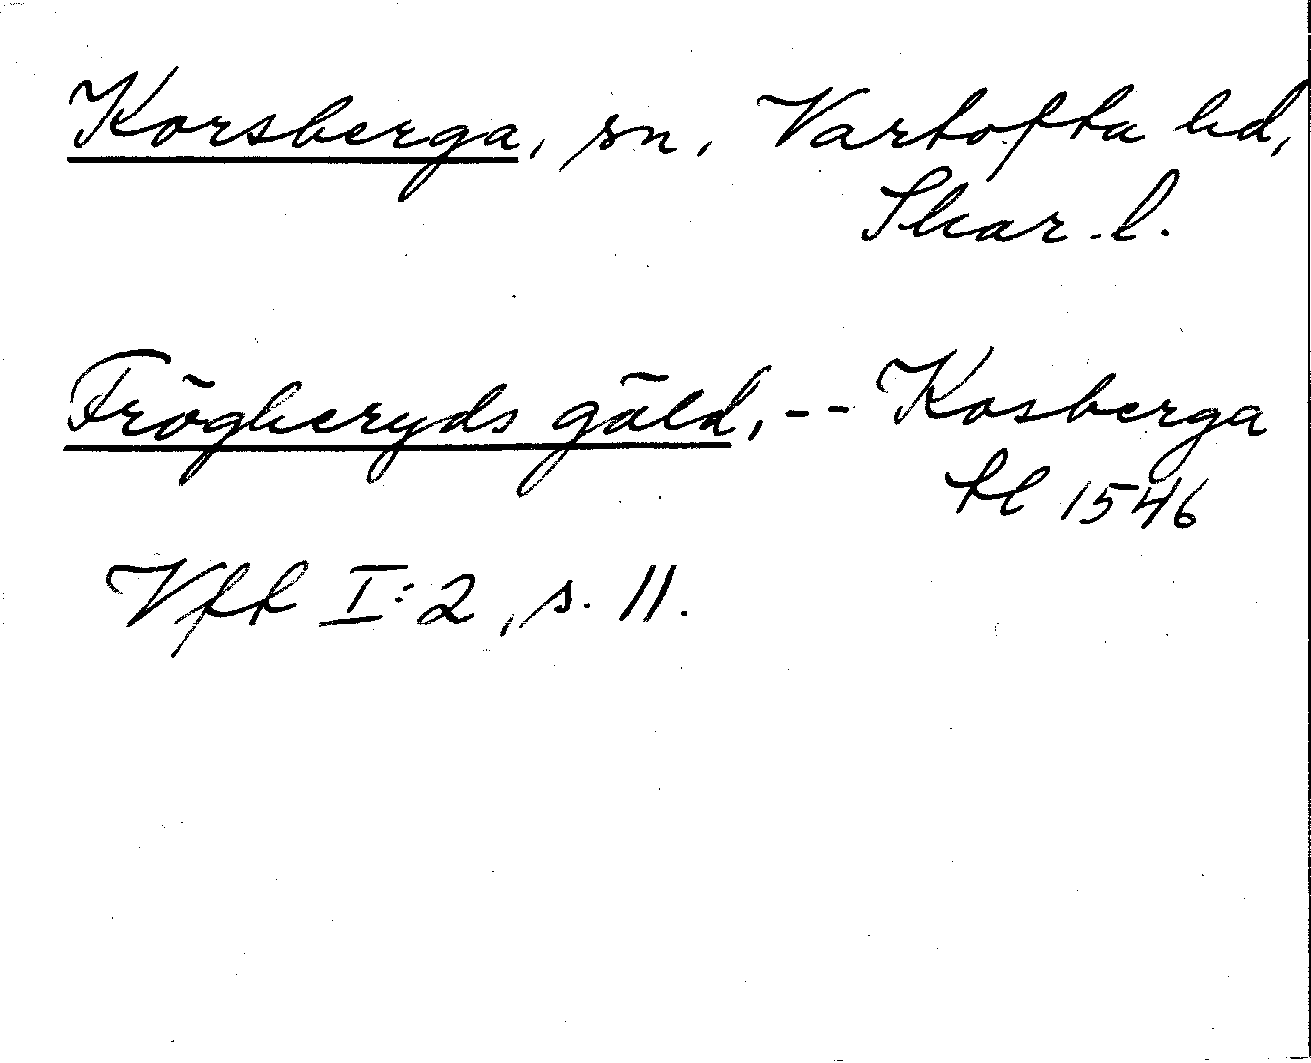 Korsberga, sn, Vartofta hd,
Skar. l.
Frögheryds gäld, -- Kosberga
hl 1546
Vfh I:2, s. 11.